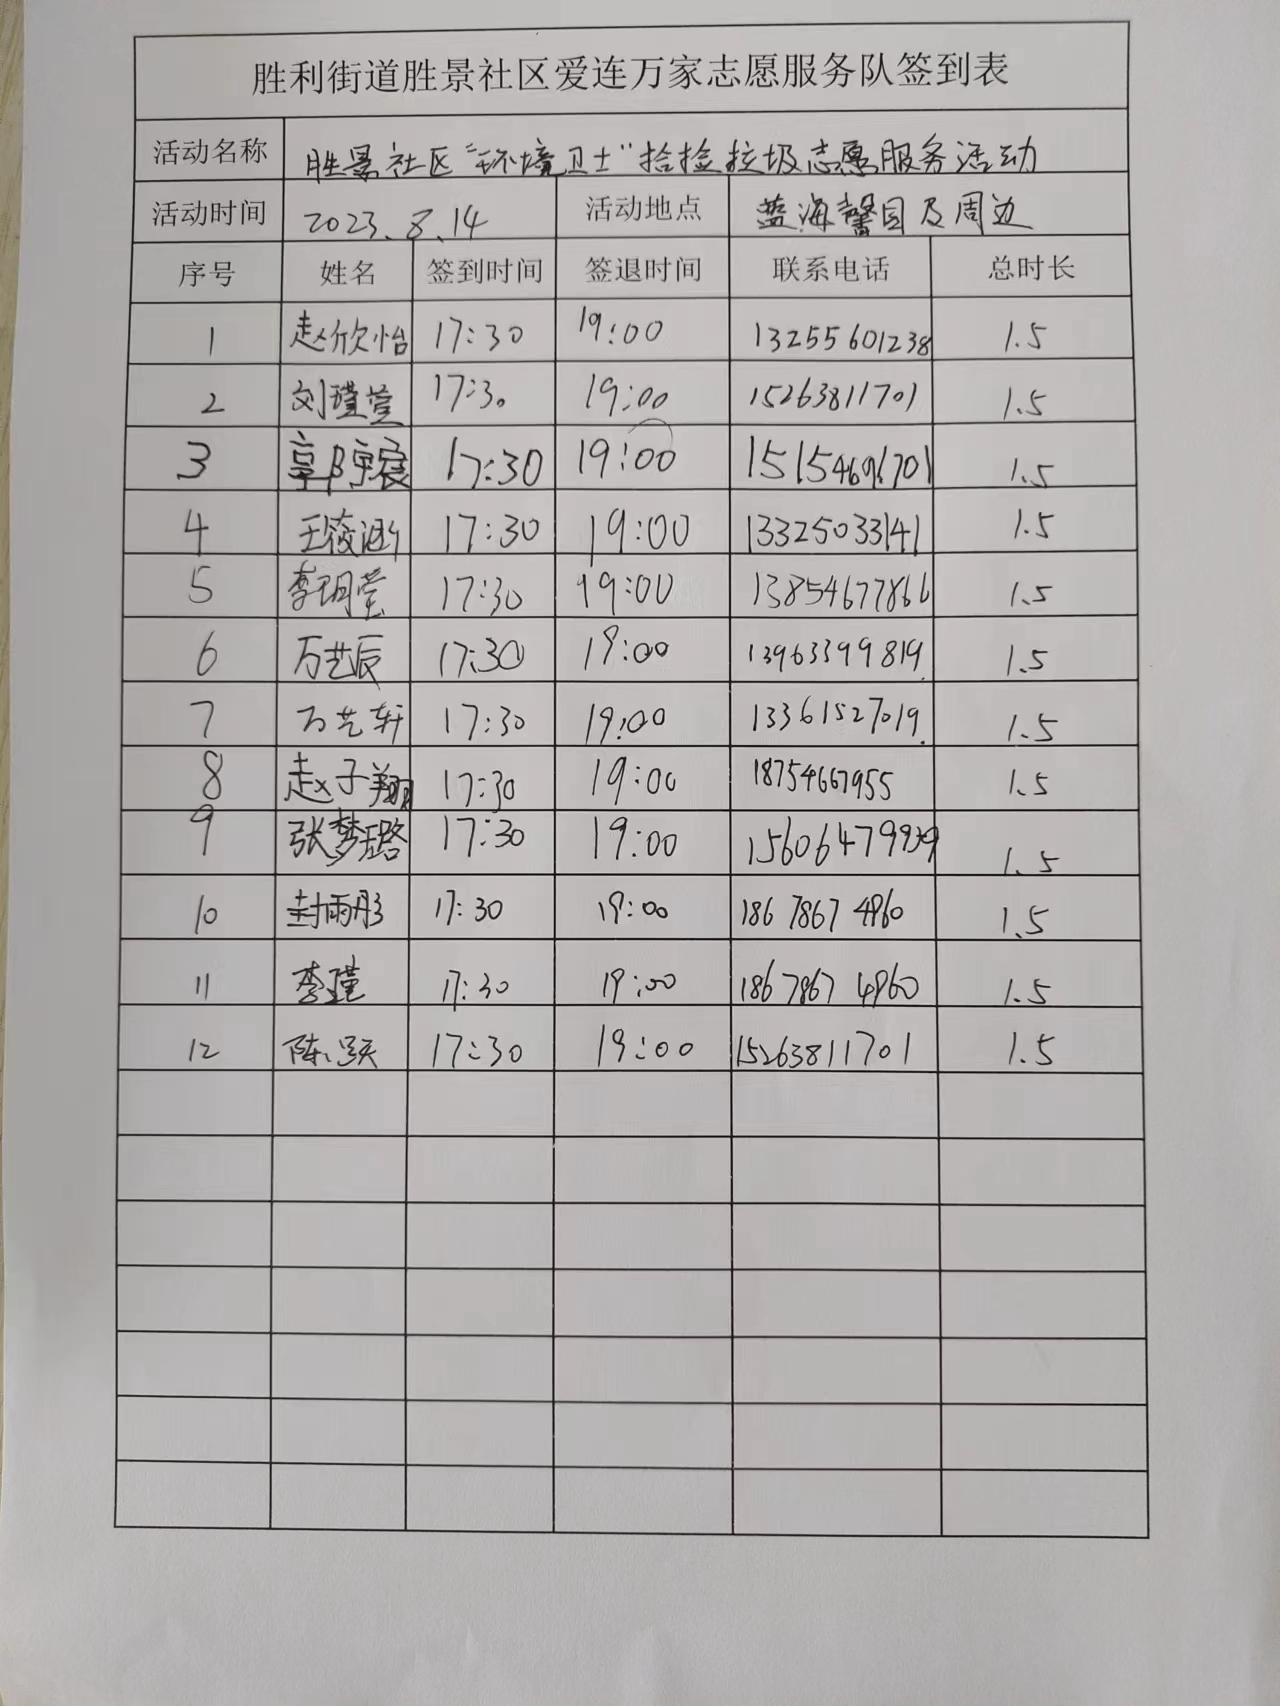 胜利街道胜景社区爱连万家志愿服务队签到表
活动名称 胜景社区"环境卫士"拾捡垃圾志愿服务活动
活动时间 2023.8.14 活动地点 蓝海馨园及周边
序号 姓名 签到时间 签退时间 联系电话 总时长
1 赵欣怡 17:30 19:00 13255601238 1.5
2 刘瑾萱 17:30 19:00 15263811701 1.5
3 17:30 19:00 15154691701 1.5
4 王筱涵 17:30 19:00 13325033141 1.5
5 李玥莹 17:30 19:00 13854677866 1.5
6 万艺辰 17:30 19:00 13963399819 1.5
7 万艺轩 17:30 19:00 13361527019 1.5
8 赵子翔 17:30 19:00 18754667955 1.5
9 张梦璐 17:30 19:00 1.5
10 封雨彤 17:30 19:00 186 7867 4960 1.5
11 李瑾 17:30 19:00 186 7867 4960 1.5
12 17:30 19:00 15263811701 1.5